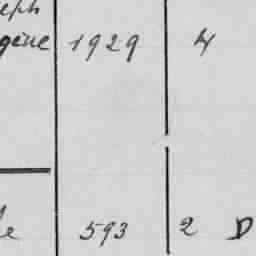 eph
gène 1929 4
le 593 2 D